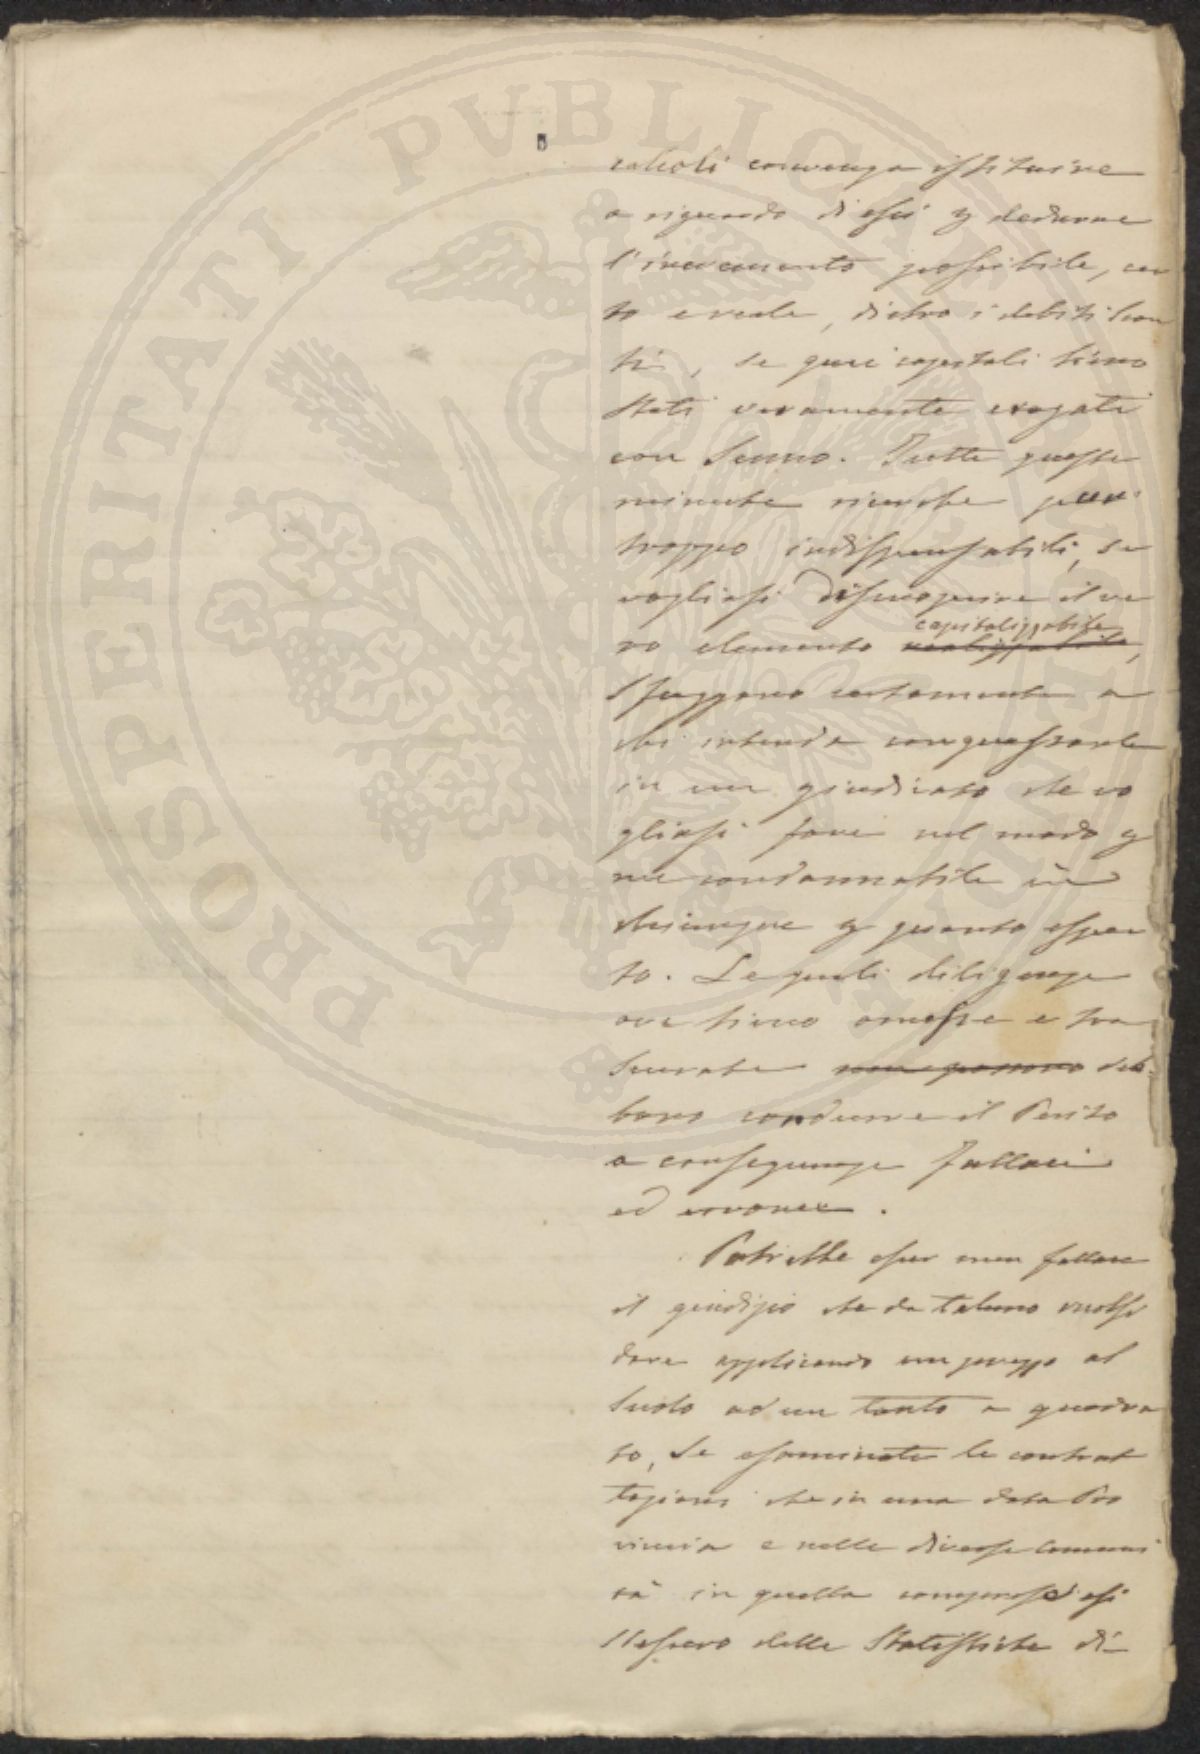 PROSPERITATI PVBLICAE AVGENDAE
calcoli convenga istituire
a riguardo di essi p dedurne
l'incremento possibile, cer
to e reale, dietro i debiti scon
ti, se quei capitali sieno
stati veramente erogati
con senno. Tutte queste
minute ricerche pur
troppo indispensabili, se
vogliasi discuoprire il ve
capitalizzabile
ro elemento realizzabile,
sfuggono certamente a
chi intenda conquassarle
in un giudicato che vo
gliasi fare nel modo p
me condannabile in
chiunque p quanto esper
to. Le quali diligenze
ove sieno omesse e tra
scurate non possono deb
bono condurre il Perito
a conseguenze fallaci
ed erronee.
Potrebbe esser men fallace
il giudizio che da taluno vuolsi
dare applicando un prezzo al
suolo ad un tanto a quadra
to, se esaminate le contrat
tazioni che in una data Pro
vincia e nelle diverse comuni
tà in quella comprese si
stessero delle Statistiche di